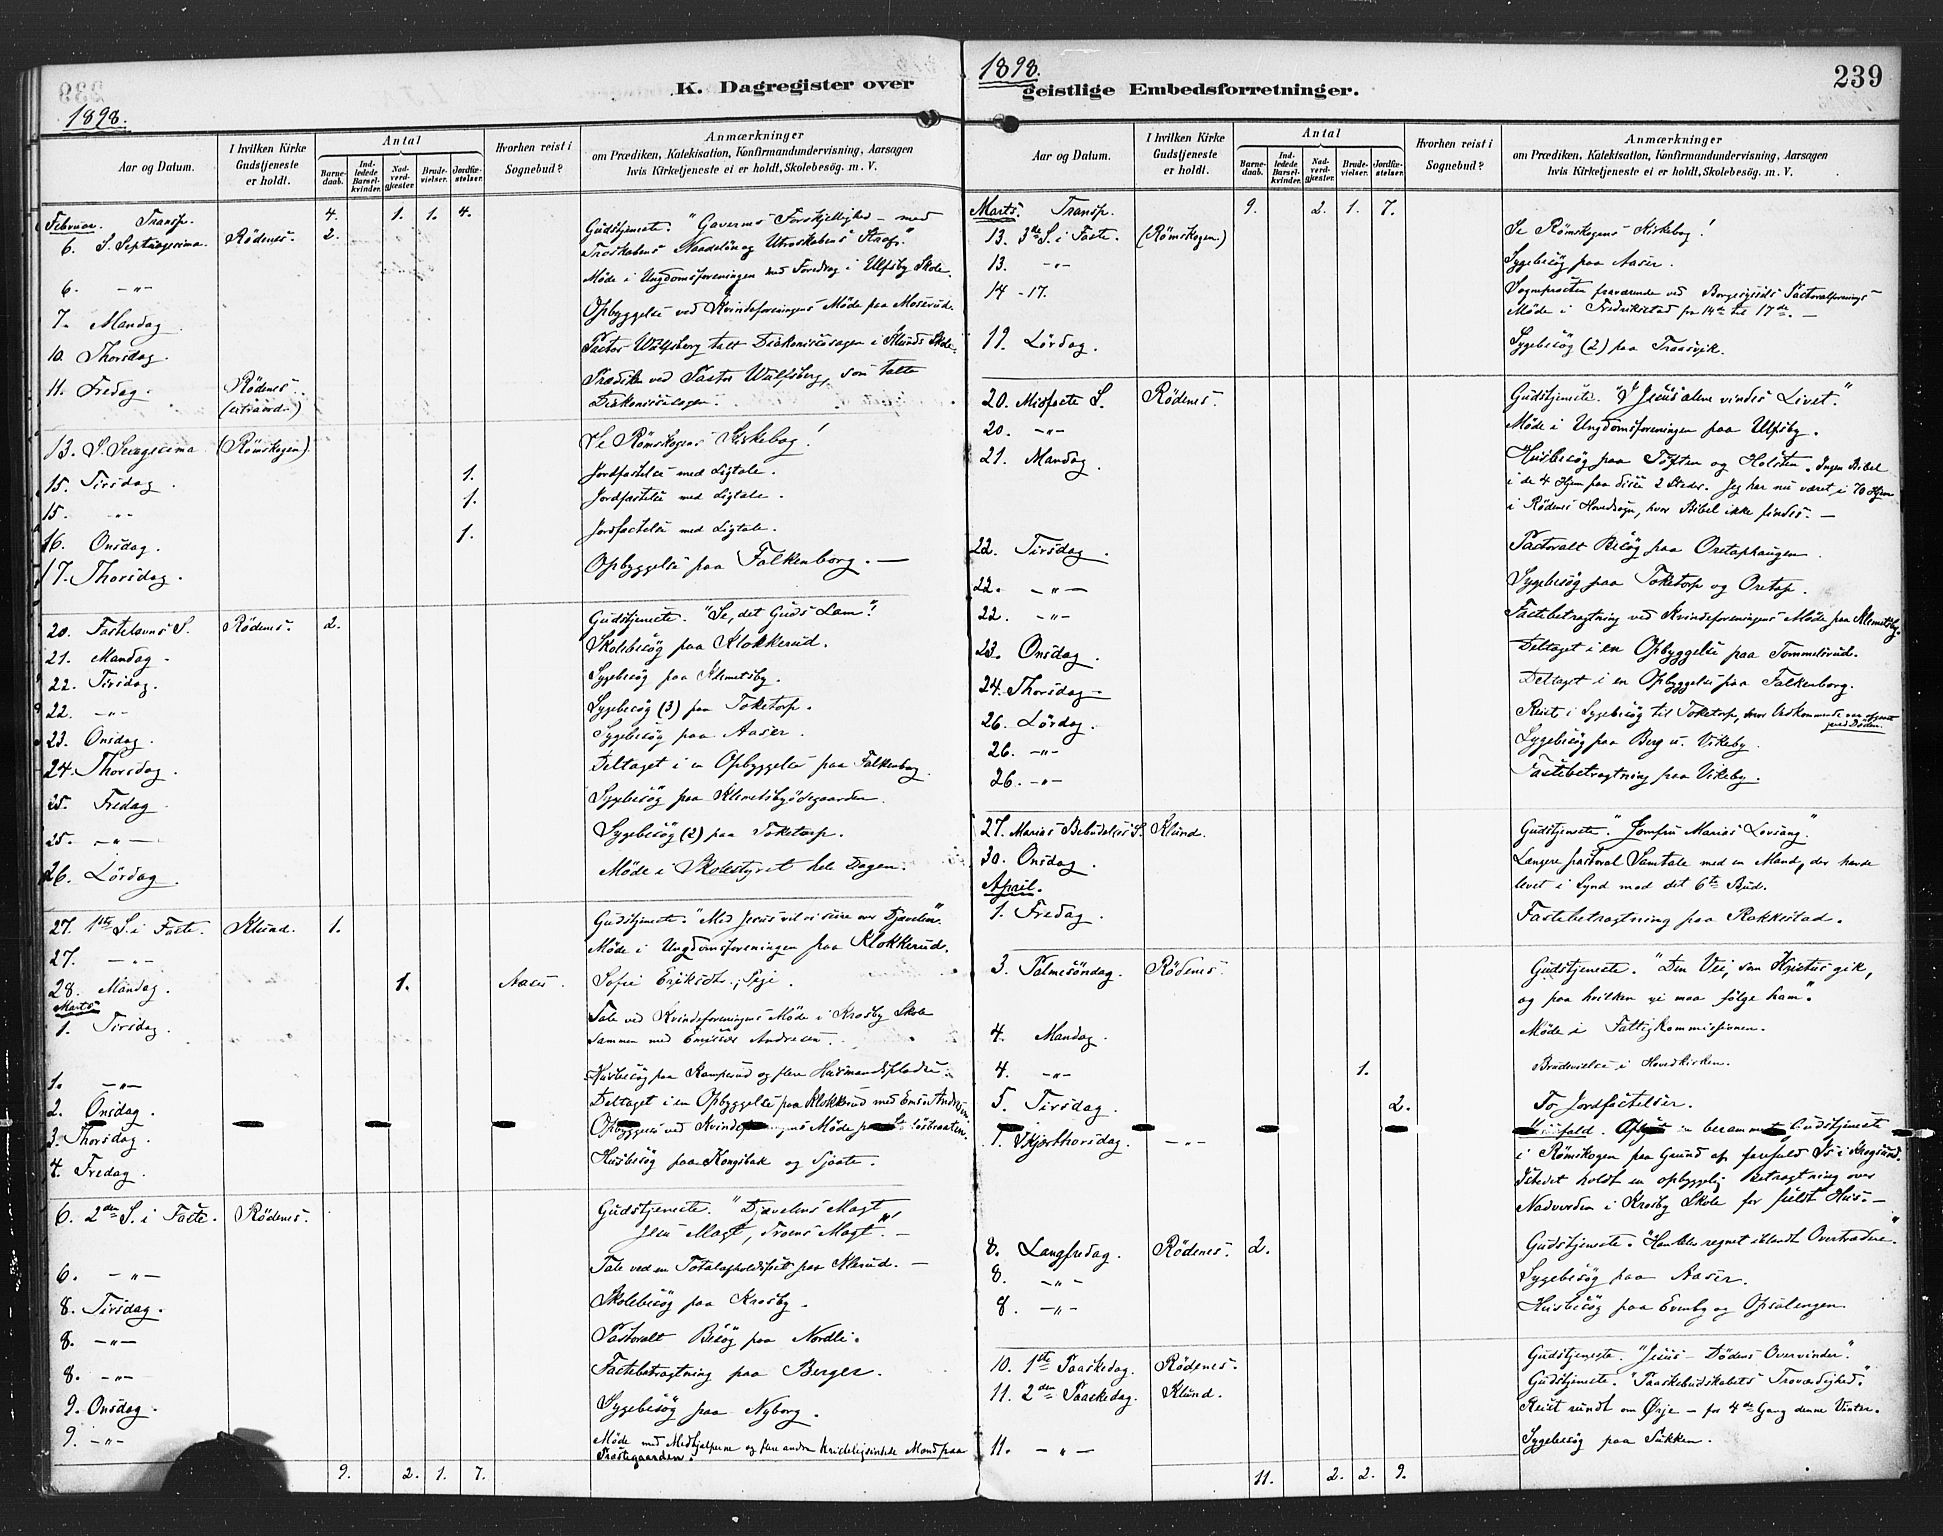 K. Dagregister over
1898.
Antal
Aar og Datum.
I hvilken Kirke Gudstjeneste er holdt.
Barnedaab.
Indledede Barselkvinder.
Nadverdgjester
Brudevielser.
Jordfæstelser.
Hvorhen reist i Sognebud?
Anmærkninger
om Prædiken, Katekisation, Konfirmandundervisning, Aarsagen
hvis Kirketjeneste ei er holdt, Skolebesøg. m. V.
Februar. Transp. 4. 1. 1. 4.
6. S. Septuagesima. Rödenes. 2. Gudstjeneste. "Gavernes Forskjellighed – med
Troskabens Naadelön og Utroskabens Straf."
6. –"– Møde i Ungdomsforeningen med Foredrag i Ulfsby Skole.
7. Mandag Opbyggelse ved Kvindeforeningens Møde paa Moserud.
10. Thorsdag. Pastor Wulfsberg talt Diakonissesagen i Klunds Skole.
11. Fredag. Rödenes. (extraord.) Prædiken ved Pastor Wulfsberg, som talte
Diakonissesagen.
13. S. Sexagesima (Römskogen). Se Römskogens Kirkebog!
15. Tirsdag 1. Jordfæstelse med Ligtale.
15. –"– 1. Jordfæstelse med Ligtale.
16. Onsdag. 1. Jordfæstelse med Ligtale.
17. Thorsdag. Opbyggelse paa Falkenborg. –
20. Fastelavns S. Rödenes. 2. Gudstjeneste. "Se, det Guds Lam"!
21. Mandag. Skolebesög paa Klokkerud.
22. Tirsdag. Sygebesög paa Klemetsby.
22. –"– Sygebesög (3) paa Toketorp.
23. Onsdag. Sygebesög paa Aaser.
24. Thorsdag. Deltaget i en Opbyggelse paa Falkenborg.
25. Fredag Sygebesög paa Klemetsbyödegaarden.
25. –"– Sygebesög (2) paa Toketorp.
26. Lördag. Møde i Skolestyret hele Dagen.
27. 1ste S. i Faste. Klund. 1. Gudstjeneste. "Med Jesus vil vi seire over Djævelen".
27. –"– Møde i Ungdomsforeningen paa Klokkerud.
28. Mandag. 1. Aaser. Sofie Eriksdtr., Pige.
Marts
1. Tirsdag. Tale ved Kvindeforeningens Møde i Krosby Skole
sammen med Emissær Andresen.
1. –"– Husbesög paa Kamperud og flere Husmandspladse.
2. Onsdag. Deltaget i en Opbyggelse paa Klokkerud med Emisær Andresen
3. Thorsdag. Opbyggelse ved Møde
4. Fredag Husbesög paa Kongsbak og Sjøate.
6. 2den S. i Faste. Rödenes. Gudstjeneste. "Djævelens Magt
Jesu Magt, Troens Magt". –
6. –"– Tale ved en Totalafholdsfest paa Klerud. –
8. Tirsdag. Skolebesög paa Krosby.
8. –"– Pastoralt Besög paa Nordli.
8. –"– Fastebetragtning paa Berger.
9. Onsdag. Sygebesög paa Nyborg.
9. –"– Møde med Medhjælperne og flere andre kristeligsindede Mænd paa
Præstegaarden.
9. 2. 1. 7.
1898.
geistlige Embedsforretninger.
239
Antal
Aar og Datum.
I hvilken Kirke Gudstjeneste er holdt.
Barnedaab.
Indledede Barselkvinder.
Nadverdgjester.
Brudevielser.
Jordfæstelser.
Hvorhen reist i Sognebud?
Anmærkninger
om Prædiken, Katekisation, Konfirmandundervisning, Aarsagen
hvis Kirketjeneste ei er holdt, Skolebesög. m. V.
Marts. Transp. 9. 2. 1. 7.
13. 3de S. i Faste. (Römskogen.) Se Römskogens Kirkebog!
13. –"– Sygebesög paa Aaser.
14 – 17. Sognepræsten fraværende ved Borgesyssels Pastoralforenings
Møde i Fredrikstad fra 14de til 17de. –
19. Lördag. Sygebesög (2) paa Traasvik.
20. Midfaste S. Rödenes. Gudstjeneste. "I Jesus alene vindes Livet".
20. –"– Møde i Ungdomsforeningen paa Ulfsby.
21. Mandag Husbesög paa Töften og Holsten. Ingen Bibel
i de 4 Hjem paa disse 2 Steder. Jeg har nu været i 70 Hjem
i Rödenes Hovedsogn, hvor Bibel ikke findes. –
22. Tirsdag. Pastoralt Besög paa Oretaphaugen.
22. –"– Sygebesög paa Toketorp og Oretop.
22. –"– Fastebetragtning ved Kvindeforeningens Møde paa Klemetsby.
23. Onsdag. Deltaget i en Opbyggelse paa Tommelsrud.
24. Thorsdag – Deltaget i en Opbyggelse paa Falkenborg.
26. Lördag. Reist i Sygebesög til Toketorp, hvor Vedkommende var
ved Döden.
26. –"– Sygebesög paa Berg u. Vikeby.
26. –"– Fastebetragtning paa Vikeby.
27. Marias Bebudelses S. Klund. Gudstjeneste. "Jomfru Marias Lovsang."
30. Onsdag. Længere pastoral Samtale med en Mand, der havde
levet i Synd mod det 6te Bud.
April.
1. Fredag. Fastebetragtning paa Rakkestad.
3. Palmesöndag. Rödenes. Gudstjeneste. "Den Vei, som Kristus gik,
og paa hvilken vi maa følge ham".
4. Mandag. Møde i Fattigkommissionen.
4. –"– 1. Brudevielse i Hovedkirken.
5. Tirsdag. 2. To Jordfæstelser.
Skjærthorsdag. –"– berammet Gudstjeneste
i Römskogen paa Grund af
Istedet holdt en opbyggelig Betragtning over
Nadverden i Krosby Skole for fuldt Hus. –
8. Langfredag. Rödenes. 2. Gudstjeneste. "Han blev regnet iblandt Overtrædere."
8. –"– Sygebesög paa Aaser.
8. –"– Husbesög paa Evenby og Opsalengen.
10. 1ste Paaskedag. Rödenes. Gudstjeneste. "Jesus – Dödens Overvinder".
11. 2den Paaskedag. Klund. Gudstjeneste. "Paaskebudskabets Troværdighed".
Reist rundt om Ørje – for 4de Gang denne Vinter.
11. –"– Sygebesög paa Sukken.
11. 2. 2. 9.